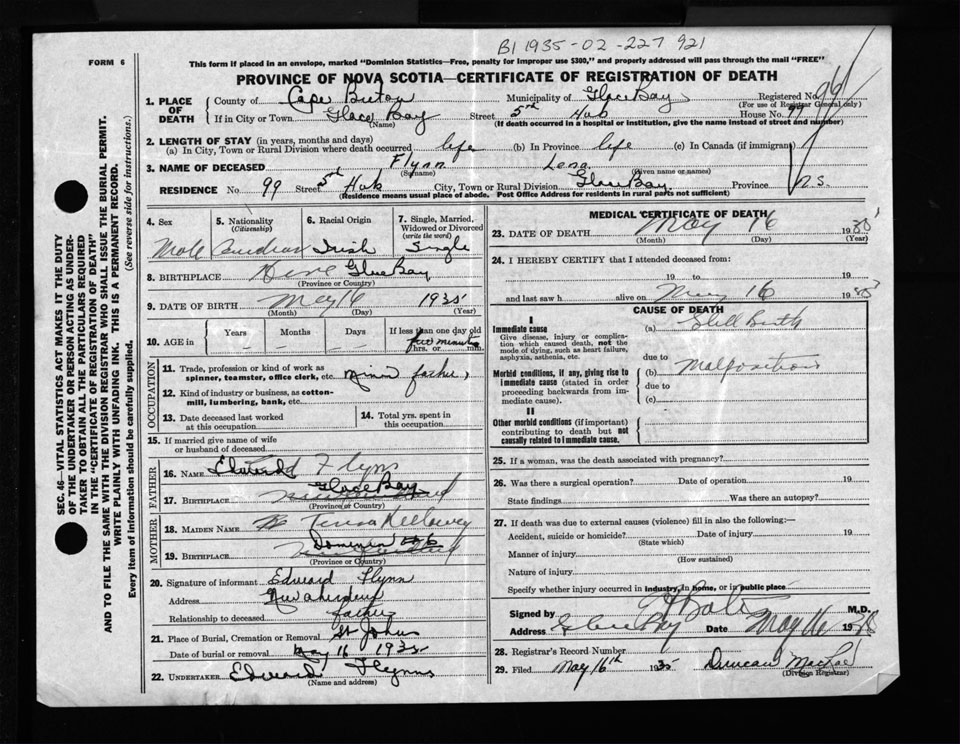 B1 1935-02-227 921
FORM 6
This form if placed in an envelope, marked "Dominion Statistics—Free, penalty for improper use $300," and properly addressed will pass through the mail "FREE"
PROVINCE OF NOVA SCOTIA—CERTIFICATE OF REGISTRATION OF DEATH
1. PLACE OF DEATH
County of Cape Breton Municipality of Glace Bay Registered No.
(For use of Registrar General only)
If in City or Town Glace Bay Street 5th Hub House No. 99
(Name) (If death occurred in a hospital or institution, give the name instead of street and number)
2. LENGTH OF STAY (in years, months and days)
(a) In City, Town or Rural Division where death occurred life (b) In Province life (c) In Canada (if immigrant)
3. NAME OF DECEASED Flynn Lena
(Surname) (Given name or names)
RESIDENCE No. 99 Street 5th Hub City, Town or Rural Division Glace Bay Province N.S.
(Residence means usual place of abode. Post Office Address for residents in rural parts not sufficient)
4. Sex 5. Nationality (Citizenship) 6. Racial Origin 7. Single, Married, Widowed or Divorced (write the word)
Male Canadian Irish Single
8. BIRTHPLACE Glace Bay
(Province or Country)
9. DATE OF BIRTH May 16 1935
(Month) (Day) (Year)
10. AGE in Years Months Days If less than one day old
five minutes
hrs. or min.
OCCUPATION
11. Trade, profession or kind of work as spinner, teamster, office clerk, etc. Miner father
12. Kind of industry or business, as cotton-mill, lumbering, bank, etc.
13. Date deceased last worked at this occupation
14. Total yrs. spent in this occupation
15. If married give name of wife or husband of deceased
FATHER
16. NAME Edward Flynn
17. BIRTHPLACE Glace Bay
(Province or Country)
MOTHER
18. MAIDEN NAME Teresa Kelloway
19. BIRTHPLACE Dominion
(Province or Country)
20. Signature of informant Edward Flynn
Address New Aberdeen
Relationship to deceased father
21. Place of Burial, Cremation or Removal St Johns
Date of burial or removal May 16 1935
22. UNDERTAKER Edward Flynn
(Name and address)
MEDICAL CERTIFICATE OF DEATH
23. DATE OF DEATH May 16 1935
(Month) (Day) (Year)
24. I HEREBY CERTIFY that I attended deceased from:
19 to 19
and last saw h alive on May 16 1935
CAUSE OF DEATH
I
Immediate cause
Give disease, injury or complication which caused death, not the mode of dying, such as heart failure, asphyxia, asthenia, etc.
(a) Still Birth
due to
Morbid conditions, if any, giving rise to immediate cause (stated in order proceeding backwards from immediate cause).
(b) Malposition
due to
(c)
II
Other morbid conditions (if important) contributing to death but not causally related to immediate cause.
25. If a woman, was the death associated with pregnancy?
26. Was there a surgical operation? Date of operation 19
State findings Was there an autopsy?
27. If death was due to external causes (violence) fill in also the following:—
Accident, suicide or homicide? Date of injury 19
(State which)
Manner of injury
(How sustained)
Nature of injury
Specify whether injury occurred in industry, in home, or in public place
Signed by M.D.
Address Glace Bay Date May 16 1935
28. Registrar's Record Number
29. Filed May 16th 1935 Duncan MacRae
(Division Registrar)
SEC. 46—VITAL STATISTICS ACT MAKES IT THE DUTY
OF THE UNDERTAKER OR PERSON ACTING AS UNDER-
TAKER TO OBTAIN ALL THE PARTICULARS REQUIRED
IN THE "CERTIFICATE OF REGISTRATION OF DEATH"
AND TO FILE THE SAME WITH THE DIVISION REGISTRAR WHO SHALL ISSUE THE BURIAL PERMIT.
WRITE PLAINLY WITH UNFADING INK. THIS IS A PERMANENT RECORD.
Every item of information should be carefully supplied. (See reverse side for instructions.)